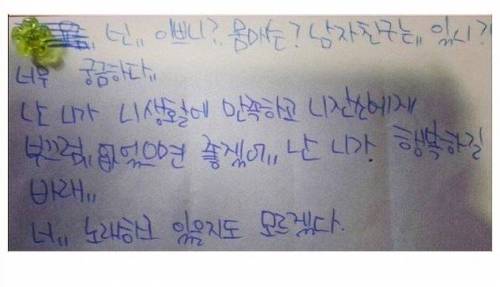 넌,, 이쁘니? 몸매는? 남자친구는,, 있니?
너무 궁금하다,,
난 니가 니생활에 만족하고 니자신에게
부끄럼,, 없었으면 좋겠어,, 난 니가 행복하길
바래,,
너,, 노래하고 있을지도 모르겠다.